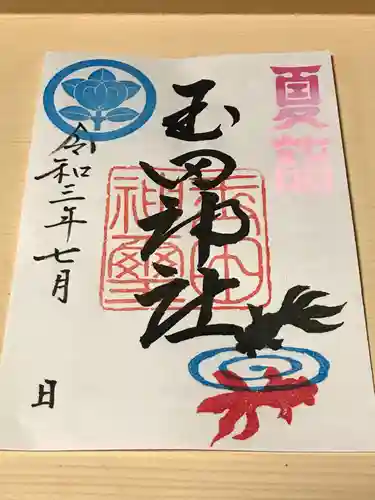 夏詣
玉田神社
玉田
神璽
令和三年七月
日